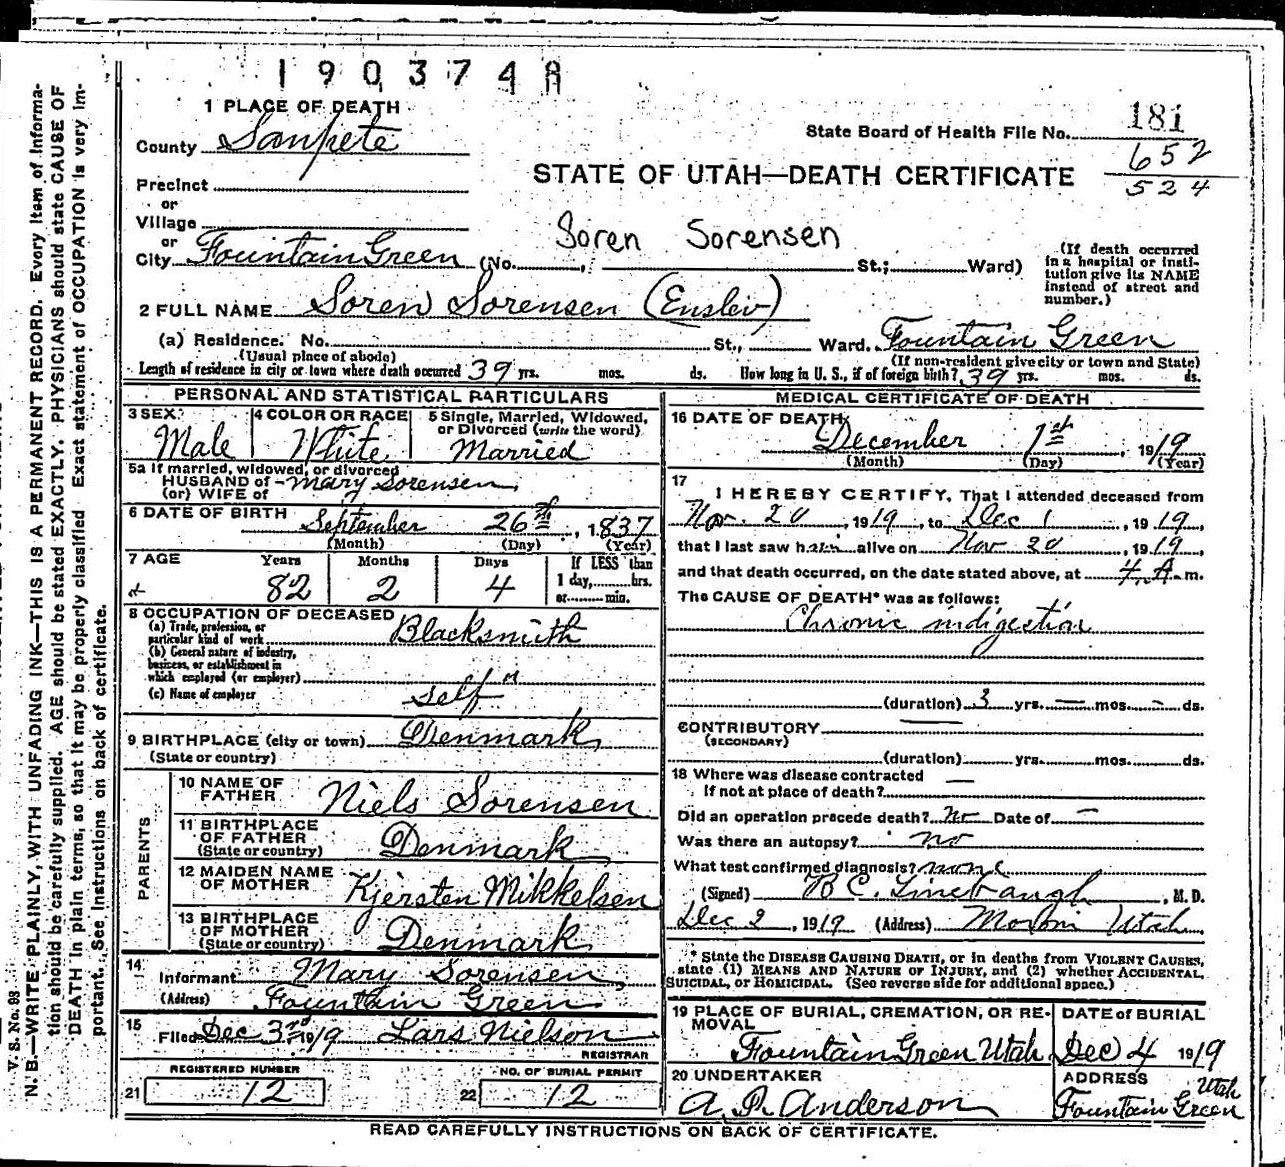 1903748
1 PLACE OF DEATH
County Sanpete
State Board of Health File No. 181
652
524
Precinct
or
Village
or
STATE OF UTAH—DEATH CERTIFICATE
Soren Sorensen
City Fountain Green (No. , St.; Ward)
(If death occurred in a hospital or insti-
tution give its NAME
instead of street and
number.)
2 FULL NAME Soren Sorensen (Enslev)
(a) Residence. No. St., Ward. Fountain Green
(Usual place of abode) (If non-resident give city or town and State)
Length of residence in city or town where death occurred 39 yrs. mos. ds. How long in U. S., if of foreign birth? 39 yrs. mos. ds.
PERSONAL AND STATISTICAL PARTICULARS
3 SEX 4 COLOR OR RACE 5 Single, Married, Widowed,
or Divorced (write the word)
Male White Married
5a If married, widowed, or divorced
HUSBAND of Mary Sorensen
(or) WIFE of
6 DATE OF BIRTH September 26th, 1837
(Month) (Day) (Year)
7 AGE Years Months Days If LESS than
1 day, hrs.
or min.
82 2 4
8 OCCUPATION OF DECEASED
(a) Trade, profession, or
particular kind of work Blacksmith
(b) General nature of industry,
business, or establishment in
which employed (or employer)
(c) Name of employer self
9 BIRTHPLACE (city or town) Denmark
(State or country)
PARENTS
10 NAME OF
FATHER Niels Sorensen
11 BIRTHPLACE
OF FATHER
(State or country) Denmark
12 MAIDEN NAME
OF MOTHER Kjersten Mikkelsen
13 BIRTHPLACE
OF MOTHER
(State or country) Denmark
14
Informant Mary Sorensen
(Address) Fountain Green
15
Filed Dec 3rd 1919 Lars Nielson
REGISTRAR
REGISTERED NUMBER NO. OF BURIAL PERMIT
21 12 22 12
MEDICAL CERTIFICATE OF DEATH
16 DATE OF DEATH
December 1st, 1919
(Month) (Day) (Year)
17
I HEREBY CERTIFY, That I attended deceased from
Nov. 20, 1919, to Dec 1, 1919,
that I last saw him alive on Nov 20, 1919,
and that death occurred, on the date stated above, at 4 A m.
The CAUSE OF DEATH* was as follows:
Chronic indigestion
(duration) 3 yrs. — mos. — ds.
CONTRIBUTORY —
(SECONDARY)
(duration) yrs. mos. ds.
18 Where was disease contracted
If not at place of death? —
Did an operation precede death? No Date of —
Was there an autopsy? no
What test confirmed diagnosis? none
(Signed) B C. Linebaugh, M. D.
Dec 2, 1919 (Address) Moroni Utah
* State the DISEASE CAUSING DEATH, or in deaths from VIOLENT CAUSES,
state (1) MEANS AND NATURE OF INJURY, and (2) whether ACCIDENTAL,
SUICIDAL, or HOMICIDAL. (See reverse side for additional space.)
19 PLACE OF BURIAL, CREMATION, OR RE-
MOVAL
DATE of BURIAL
Fountain Green Utah Dec 4 1919
20 UNDERTAKER ADDRESS
A. P. Anderson Fountain Green Utah
READ CAREFULLY INSTRUCTIONS ON BACK OF CERTIFICATE.
V. S. No. 98
N. B.—WRITE PLAINLY, WITH UNFADING INK—THIS IS A PERMANENT RECORD. Every item of informa-
tion should be carefully supplied. AGE should be stated EXACTLY. PHYSICIANS should state CAUSE OF
DEATH in plain terms, so that it may be properly classified. Exact statement of OCCUPATION is very im-
portant. See instructions on back of certificate.